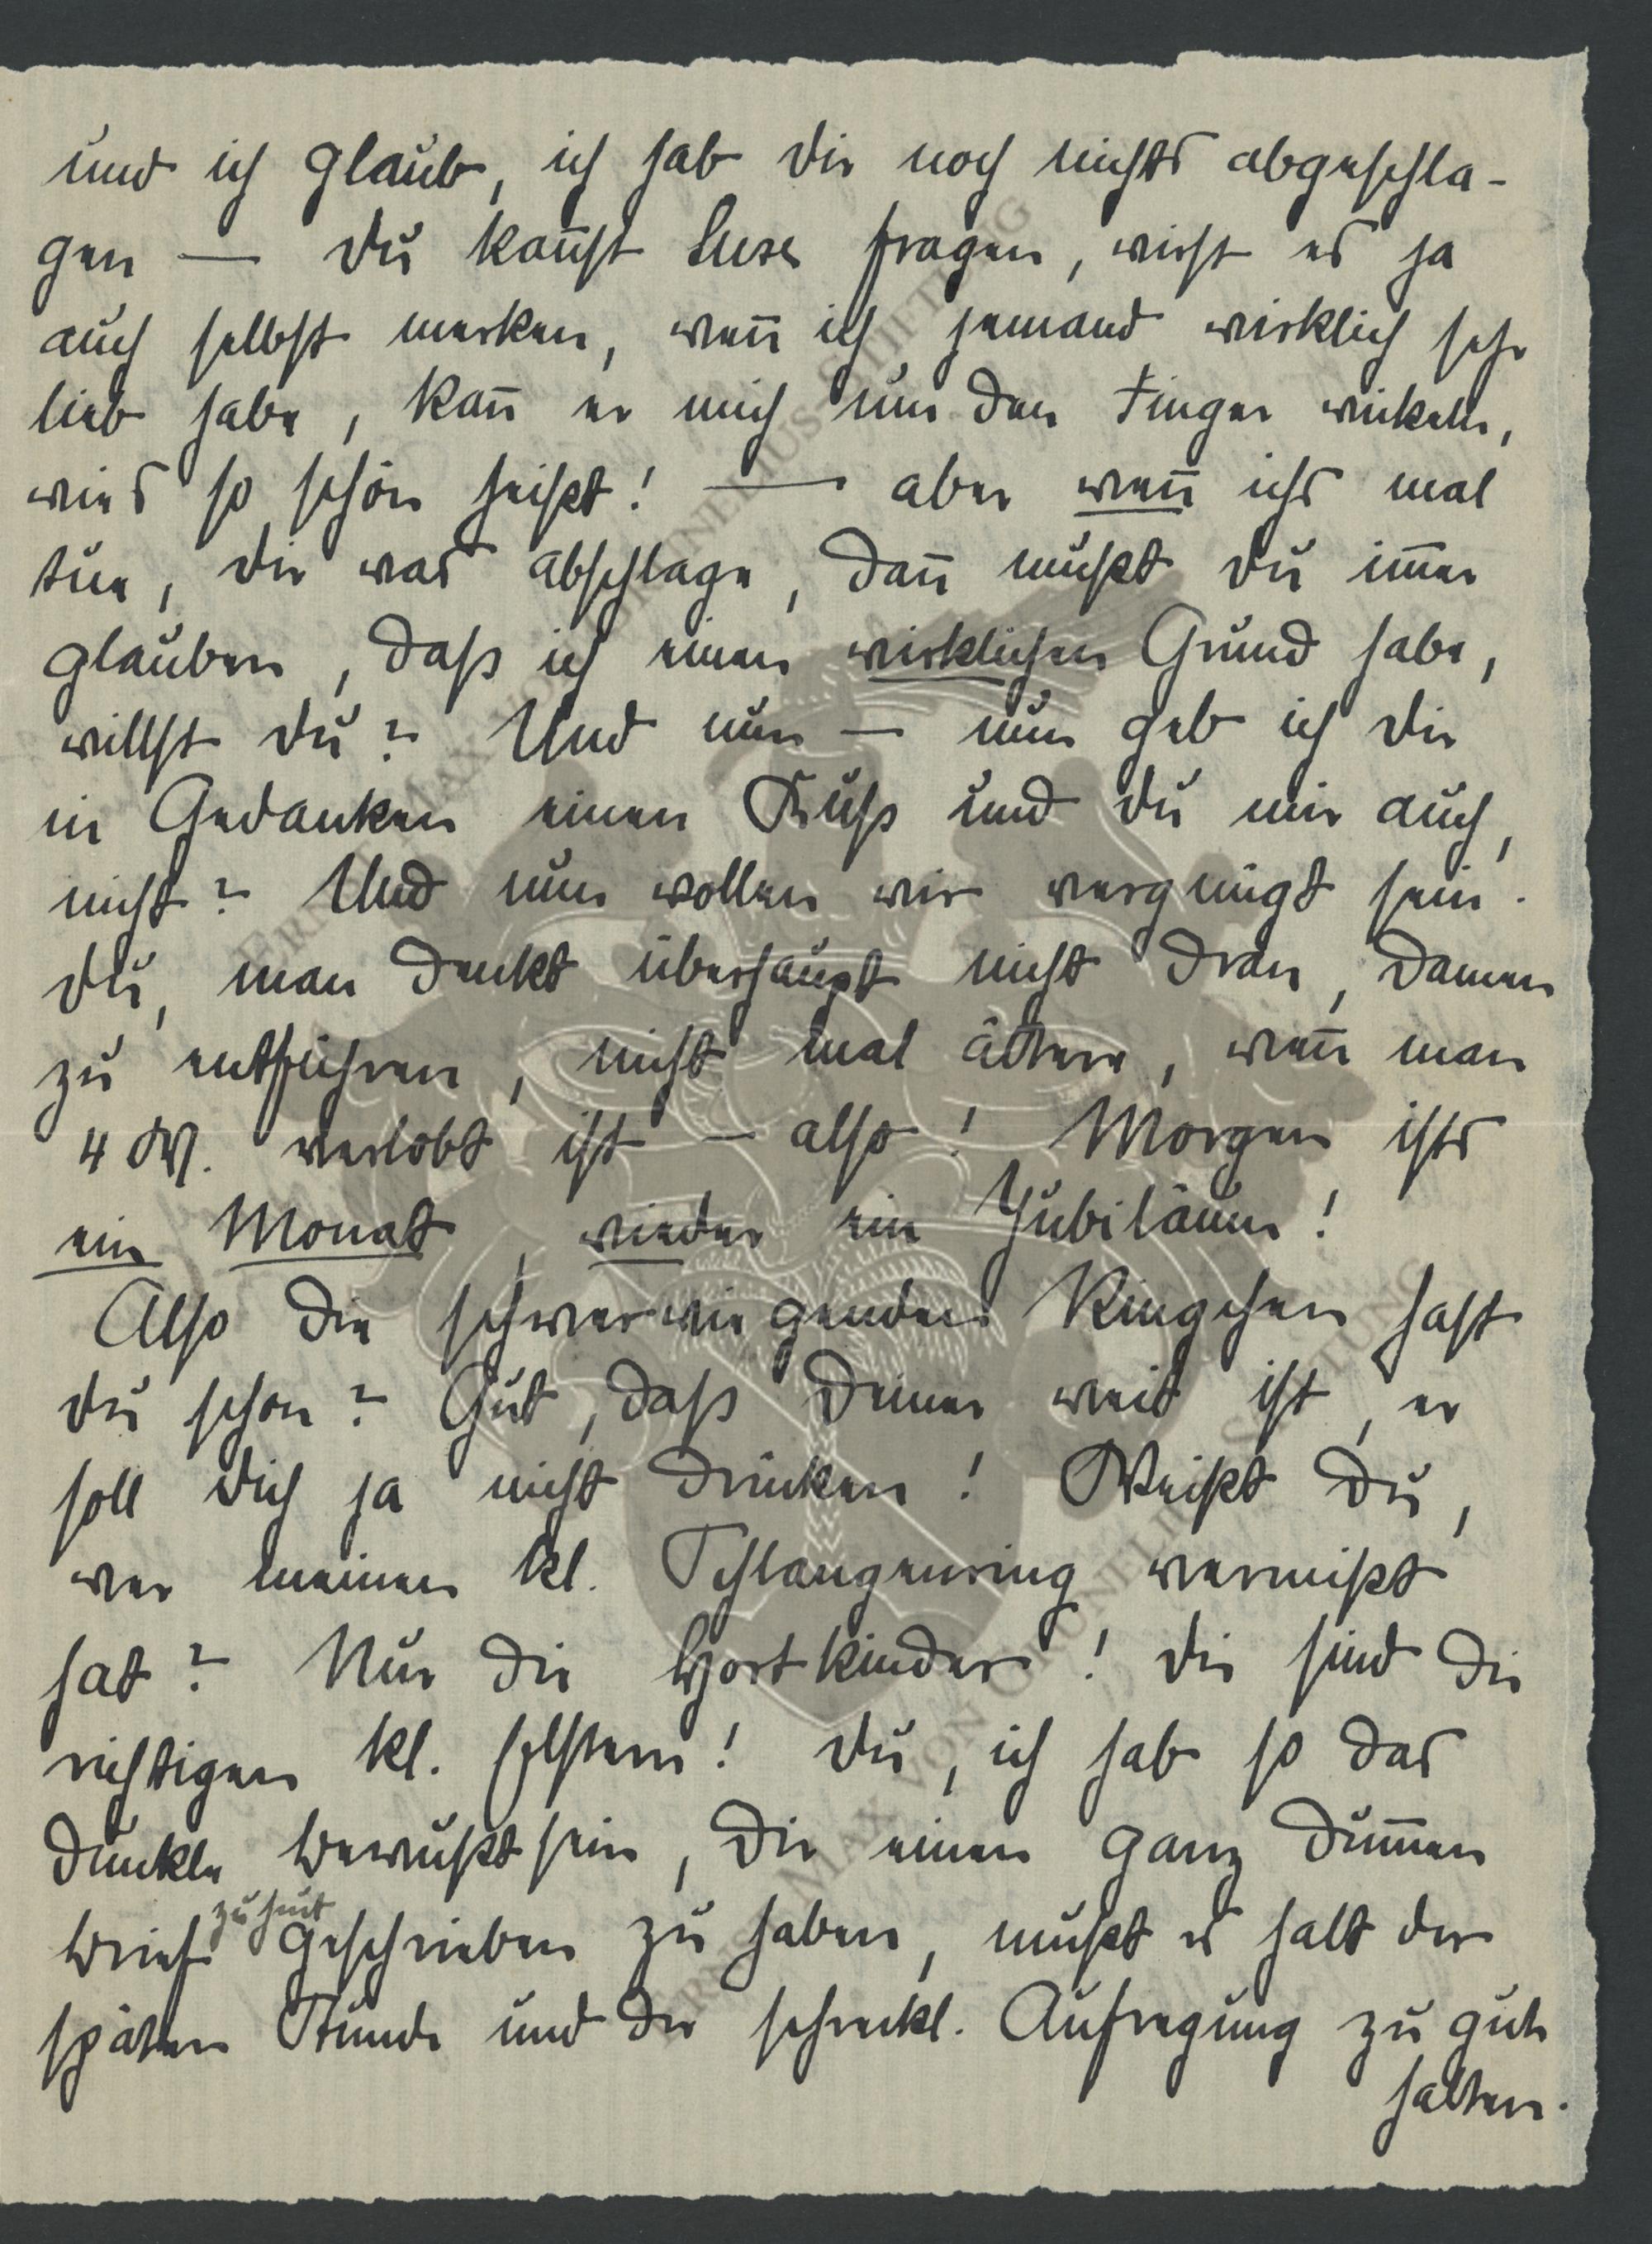 und ich glaub, ich hab dir noch nichts abgeschla-
gen — du kan̄st Suse fragen, wirst es ja
auch selbst merken, wen̄ ich jemand wirklich sehr
lieb habe, kan̄ er mich um den Finger wickeln,
wies so schön heißt! — aber wen̄ ichs mal
tue, dir was abschlage, dan̄ mußt du im̄er
glauben, daß ich einen wirklichen Grund habe,
willst du? Und nun — nun geb ich dir
in Gedanken einen Kuß und du mir auch,
nicht? Und nun wollen wir vergnügt sein.
Du, man denkt überhaupt nicht dran, Damen
zu entführen, nicht mal ältere, wen̄ man
4 W. verlobt ist — also! Morgen ists
ein Monat, wieder ein Jubiläum!
Also die schwerwiegenden Ringchen hast
du schon? Gut, daß deiner weit ist, er
soll dich ja nicht drücken! Weißt du,
wer meinen kl. Schlangenring vermißt
hat? Nur die Hortkinder! die sind die
richtigen kl. Elstern! Du, ich hab so das
dunkle Bewußtsein, dir einen ganz dum̄en
Brief zu heut geschrieben zu haben, mußt es halt der
späten Stunde und der schreckl. Aufregung zu gut
halten.
ERNST MAX VON GRUNELIUS STIFTUNG
ERNST MAX VON GRUNELIUS STIFTUNG